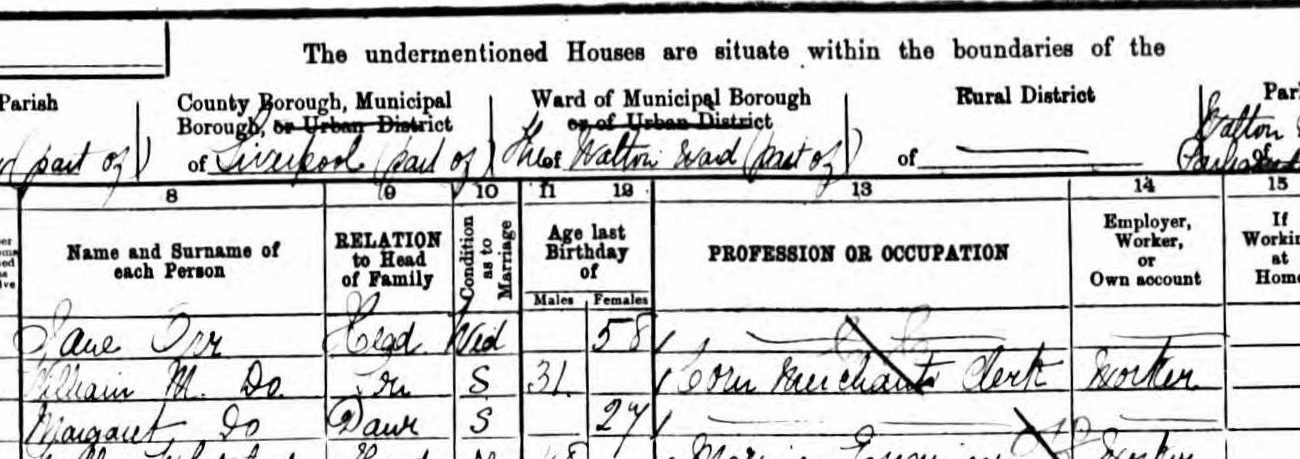 The undermentioned Houses are situate within the boundaries of the
Parish
County Borough, Municipal Borough, or Urban District
of Liverpool (part of)
Ward of Municipal Borough or of Urban District
of Walton Ward (part of)
Rural District
of
(part of)
Walton
8 9 10 11 12 13 14 15
Name and Surname of each Person
RELATION to Head of Family
Condition as to Marriage
Age last Birthday of
Males Females
PROFESSION OR OCCUPATION
Employer, Worker, or Own account
If Working at Home
Jane Orr Head Wid 58
William M. Do Son S 31 Corn Merchants Clerk Worker
Margaret Do Daur S 27